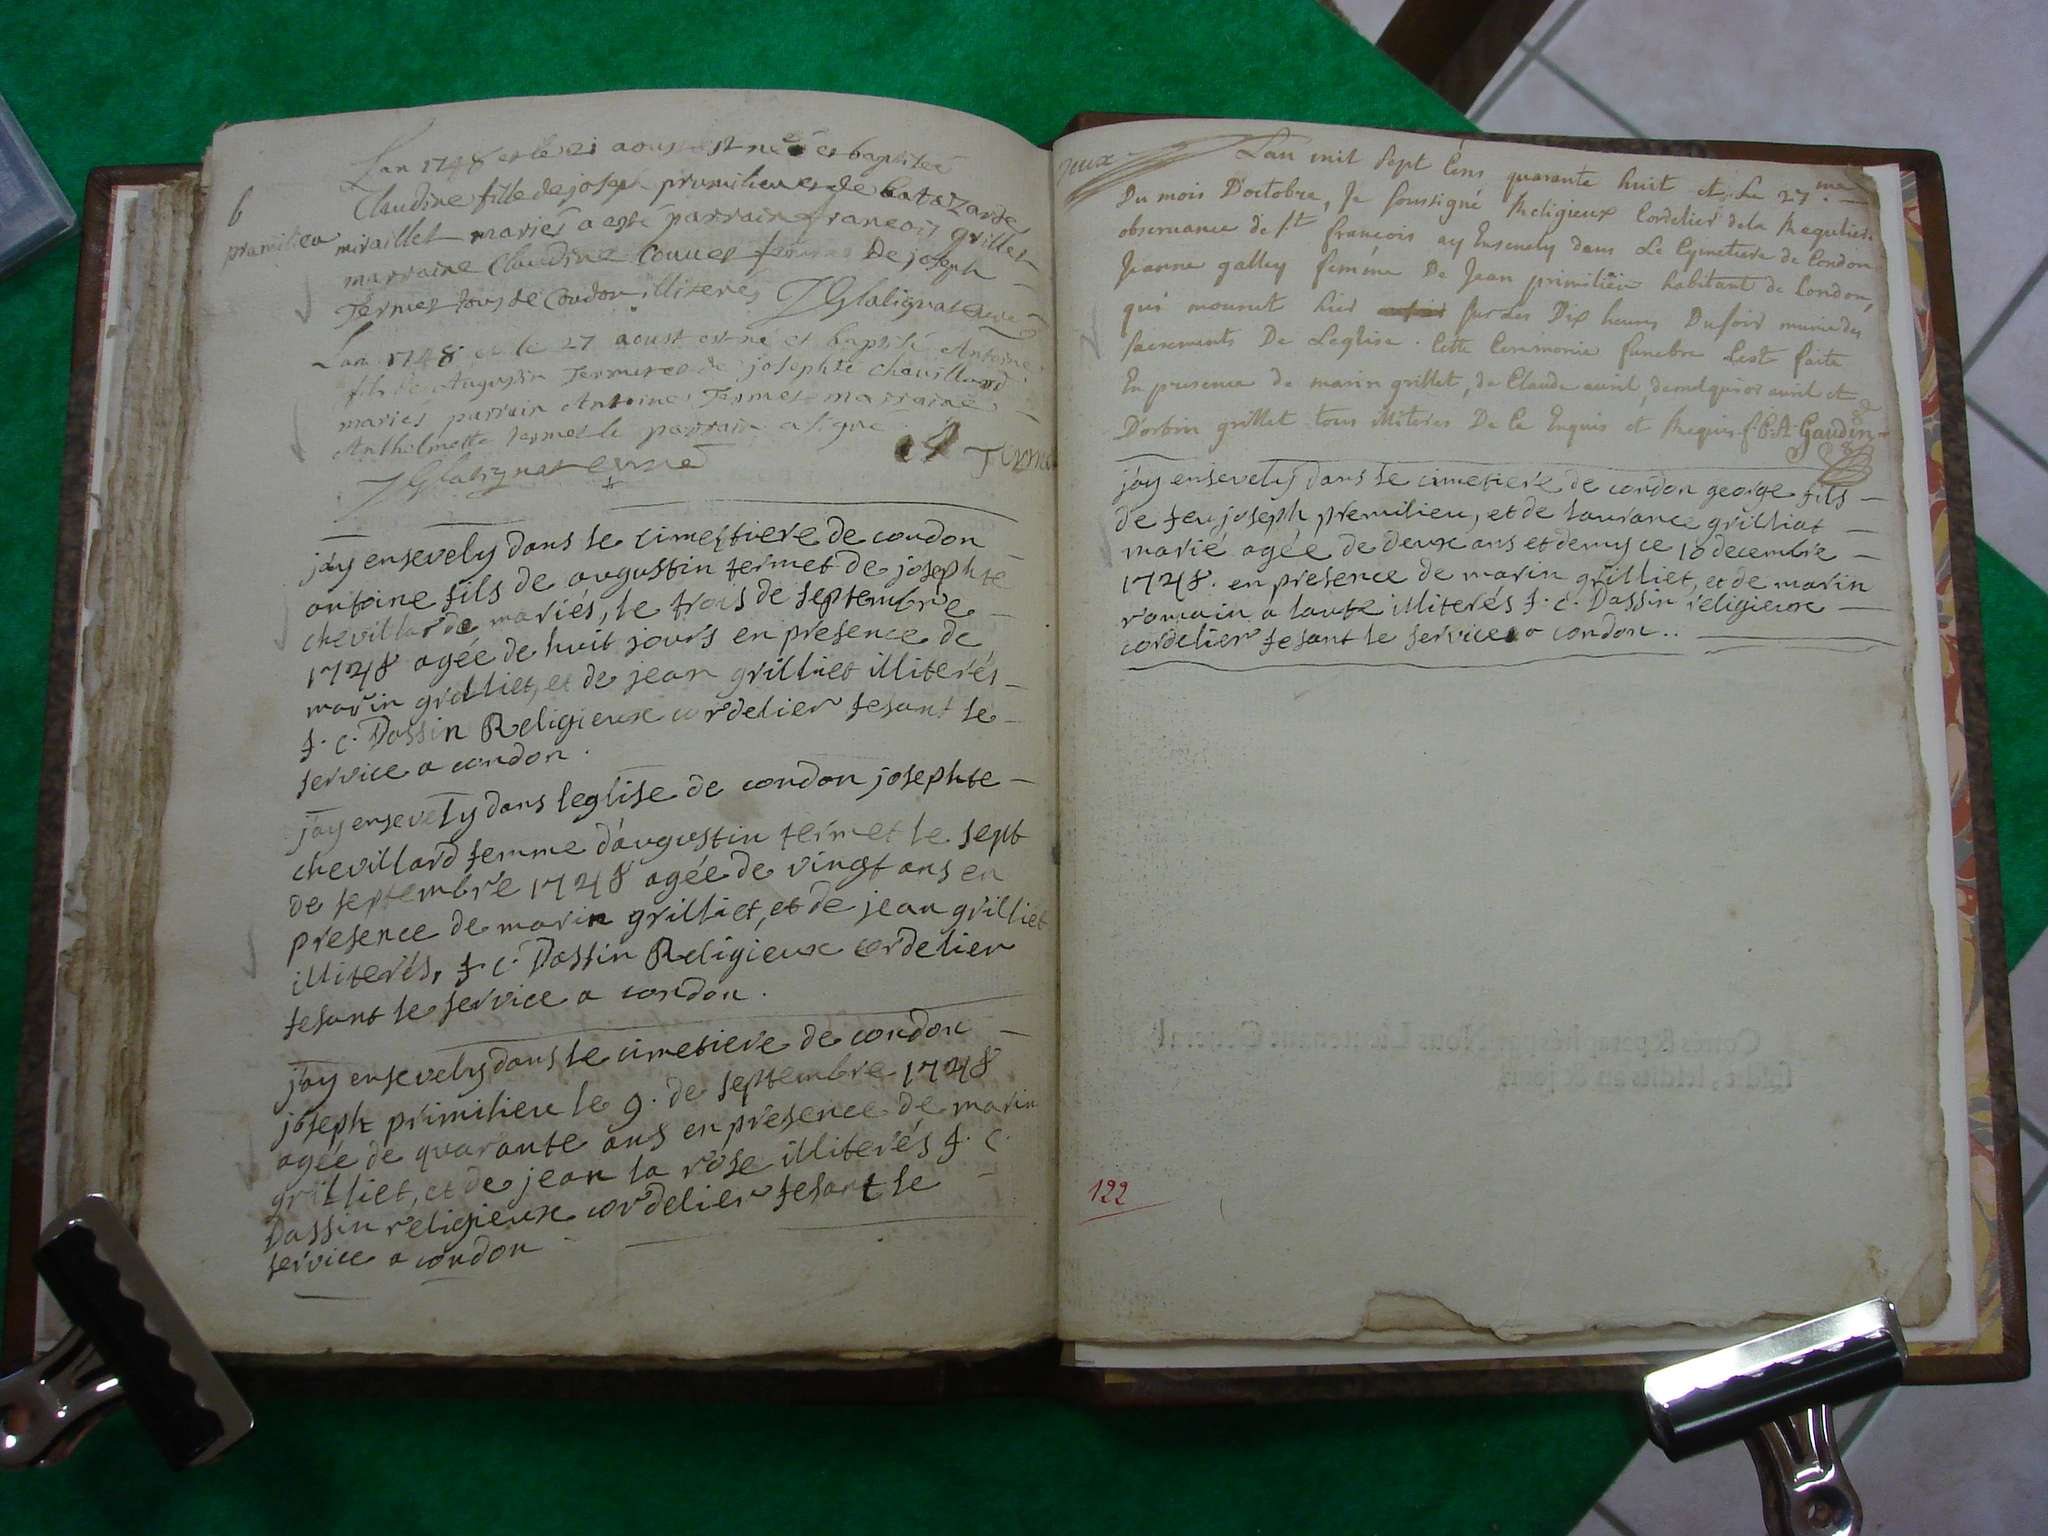 Lan 1748 et le 21 aoust est née et baptisée
b
Claudine fille de joseph prumilieu et de batazarde
pramilieu
miraillet mariés a esté parrain francois grillet
marraine Claudine Couuet femme De joseph
Termet tous de Condon illiterés JGlalignat Curé
Lan 1748 et le 27 aoust est né et baptisé Antoine
fils de Augustin Termet et de josephte chavillard
mariés parrain Antoine Termet marraine
Anthelmette termet le parrain a signé
JGlalignat curé
A Termet
j'ay ensevely dans le cimestiere de condon
antoine fils de augustin termet de josephte
chevillarde mariés, le trois de septembre
1748 agée de huit jours en presence de
marin grilliet, et de jean grilliet illiterés
f. c. Dassin Religieux cordelier fesant le
service a condon.
j'ay ensevely dans leglise de condon josephte
chevillard femme d'augustin termet le sept
de septembre 1748 agée de vingt ans en
presence de marin grilliet, et de jean grilliet
illiterés, f. c. Dassin Religieux cordelier
fesant le service a condon.
j'ay ensevely dans le cimetiere de condon
joseph primilieu le 9. de septembre 1748
agée de quarante ans en presence de marin
grilliet, et de jean la rose illiterés f. c.
Dassin religieux cordelier fesant le
service a condon
Lan mil sept Cens quarante huit et Le 27.me
Du mois D'octobre, Je soussigné Religieux Cordelier de la Reguliere
observance de st francois ay Ensevely dans Le Cymetiere de Condon
Jeanne galley femme De Jean primilieu habitant de Condon,
qui mourut hier sur Les Dix heures Du soir munie des
sacrements De Leglise. Cette Ceremonie funebre s'est faite
En presence de marin grillet, de Claude avril, de melquior avril et
D'orbin grillet tous illiteres De Ce Enquis et Requis f. C. A Gaudin
j'ay ensevely dans le cimetiere de condon george fils
de feu joseph premilieu, et de laurance grilliat
marié agée de deux ans et demy ce 10 decembre
1748. en presence de marin grilliet, et de marin
romain a laute illiterés f. c. Dassin religieux
cordelier fesant le service a condon..
Cottés & paraphés par Nous Lieutenant General
122